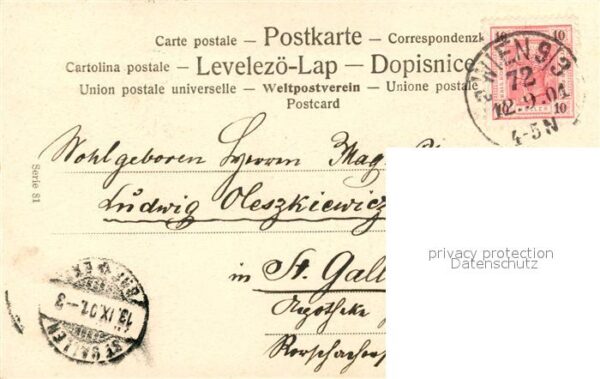 Carte postale — Postkarte — Correspondenzk
Cartolina postale — Levelezö-Lap — Dopisnice
Union postale universelle — Weltpostverein — Unione postale
Postcard
10 10
WIEN 9/3
72
12.9.01
4-5N
10 10
Serie 81
Wohlgeboren Herrn Mag.
Ludwig Oleszkiewicz
in St. Gall
Apotheke
Rorschacher
privacy protection
Datenschutz
13.IX.01.-3
ST GALLEN